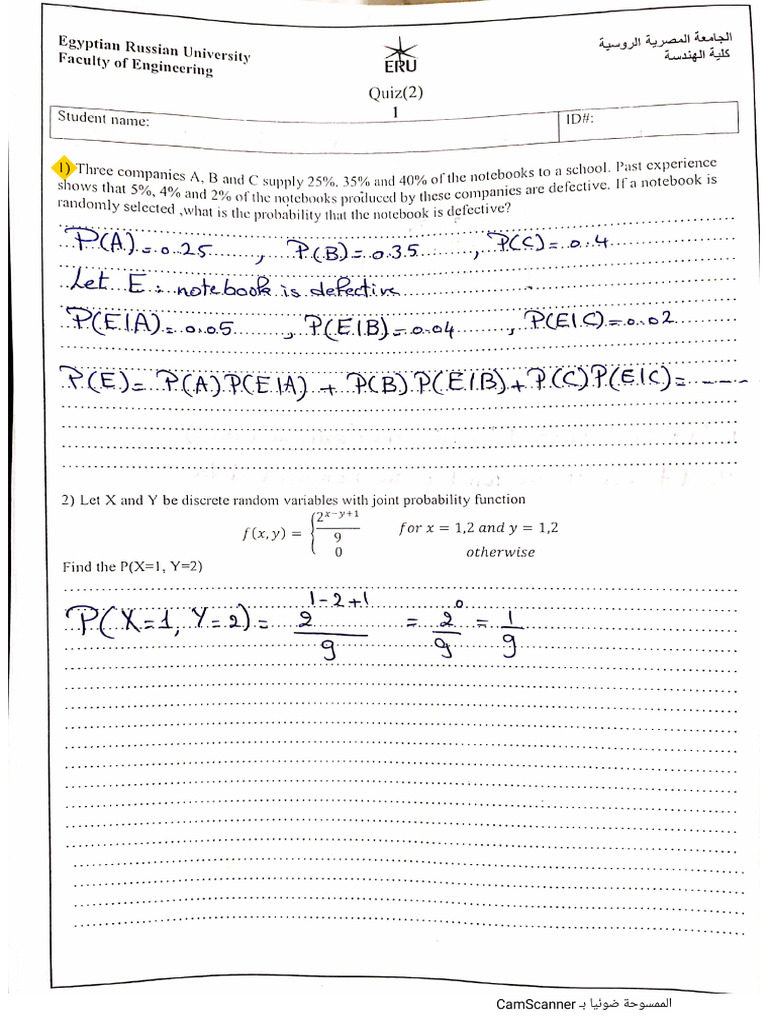 Egyptian Russian University
Faculty of Engineering
ERU
الجامعة المصرية الروسية
كلية الهندسة
Quiz(2)
1
Student name:
ID#:
1) Three companies A, B and C supply 25%, 35% and 40% of the notebooks to a school. Past experience
shows that 5%, 4% and 2% of the notebooks produced by these companies are defective. If a notebook is
randomly selected ,what is the probability that the notebook is defective?
P(A) = 0.25 , P(B) = 0.35 , P(C) = 0.4
Let E : notebook is defective
P(E|A) = 0.05 , P(E|B) = 0.04 , P(E|C) = 0.02
P(E) = P(A) P(E|A) + P(B) P(E|B) + P(C) P(E|C) = ----
2) Let X and Y be discrete random variables with joint probability function
f(x, y) = { 2^{x-y+1}/9 for x = 1,2 and y = 1,2
0 otherwise
Find the P(X=1, Y=2)
P(X=1, Y=2) = 2^{1-2+1}/9 = 2^0/9 = 1/9
الممسوحة ضوئيا بـ CamScanner